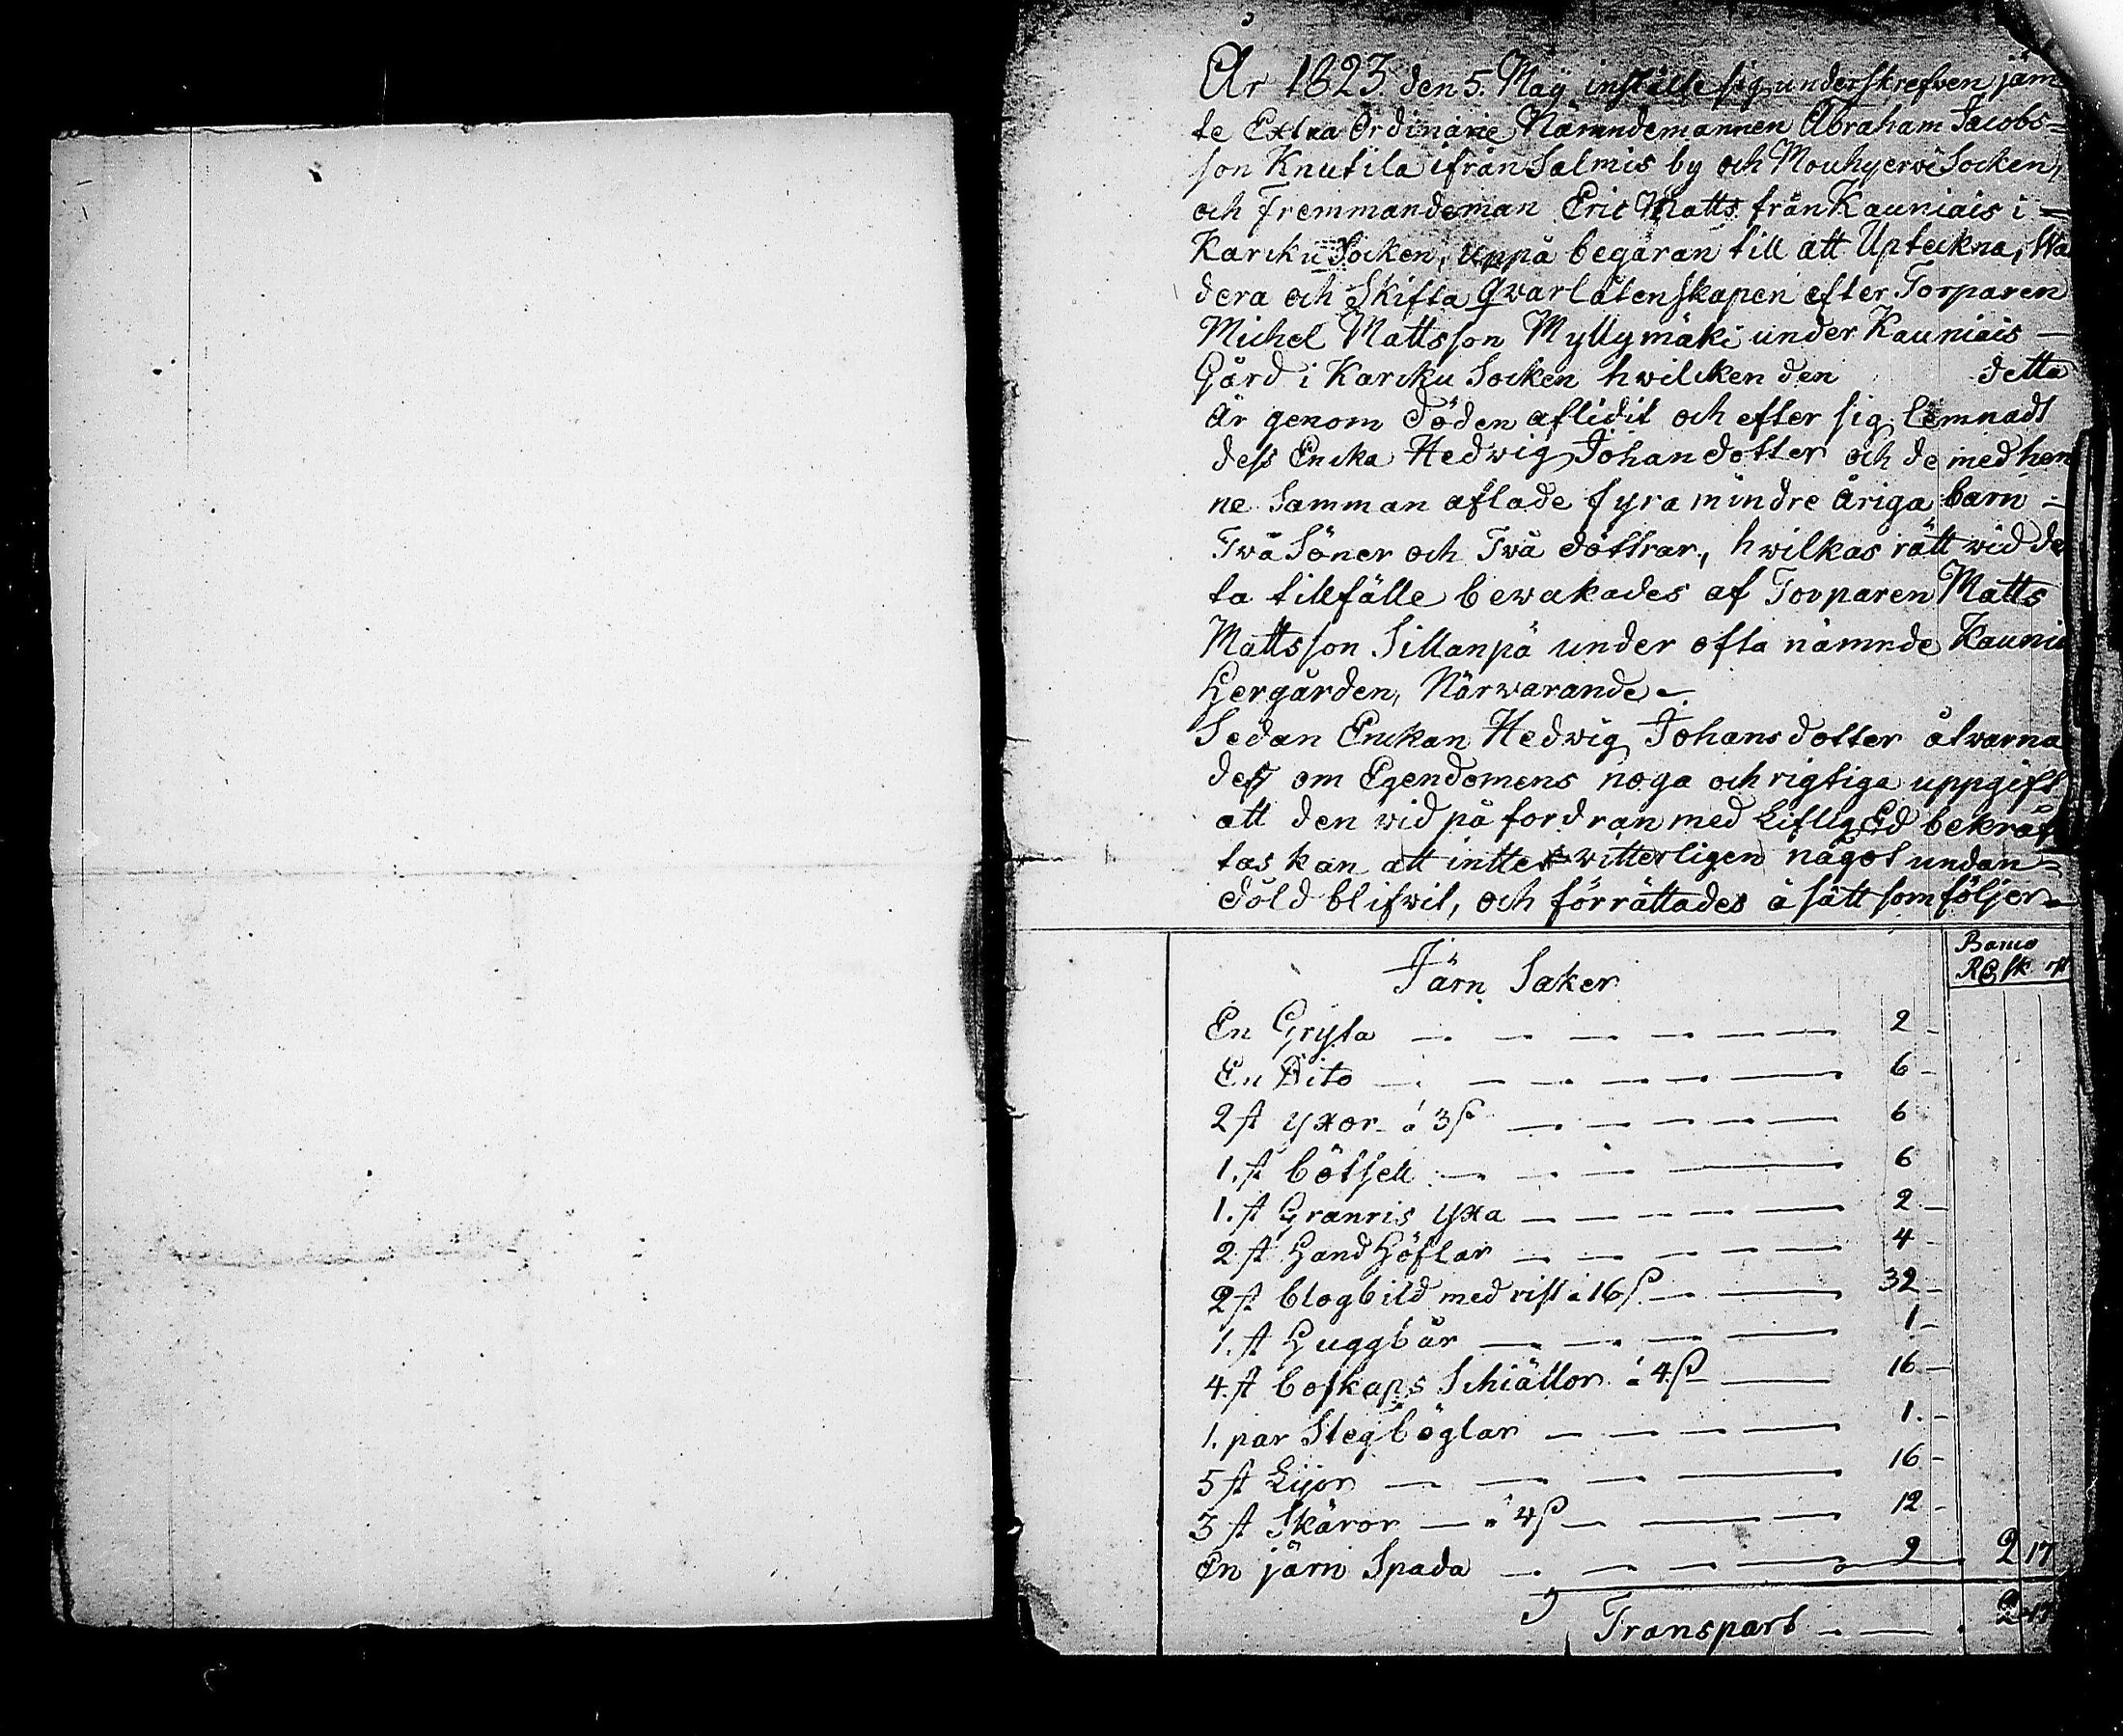 År 1823 den 5. Maÿ instälte sig underskrefven jäm
te Extra Ordinarie Nämndemannen Abraham Jacobs=
son Knutila ifrån Salmis by och Mouhyerwi Socken,
och Fremmandeman Eric Matts från Kauniais i =
Karcku Socken, uppå begäran till att Upteckna, Wa
dera och Skifta Qvarlåtenskapen efter Torparen
Michel Mattsson Myllymäki under Kauniais —
Gård i Karcku Socken hwilcken den detta
År genom döden aflidit och efter sig lemnadt
dess Encka Hedwig Johansdotter och de med hen
ne Samman aflade fyra mindre åriga barn -
Twå Söner och Twå döttrar, hwilkas rätt wid de
ta tillfälle bewakades af Torparen Matts
Mattsson Sillanpä under ofta nämnde Kaunia
Hergården, Närwarande -
Sedan Enckan Hedwig Johansdotter alwarna
dess om Egendomens noga och rigtiga uppgift
att den wid på fordran med Liflig Ed bekräf
tas kan att intet witterligen något undan-
döld blifwit, och förrättades å sätt som följer -
Banco
Järn Saker RG sk rst
En Gryta — — — 2 -
En Dito — — — 6 -
2 st yxor á 3 s — — — 6
1. st Bötsell — — — 6
1. st Granris yxa — — — 2. -
2 st Hand Höflar — — — 4 -
2 st blogbild med rist á 16 s. — — 32 -
1. st Huggbår — — — 1 -
4. st boskaps Schiällor á 4 s — — 16 -
1. par Stegböglar — — — 1. -
5 st Lijor — — — 16 -
3 st Skäror — á 4 s — — 12 -
En järn Spada — — — 9 2 17
Transport — — 2 17